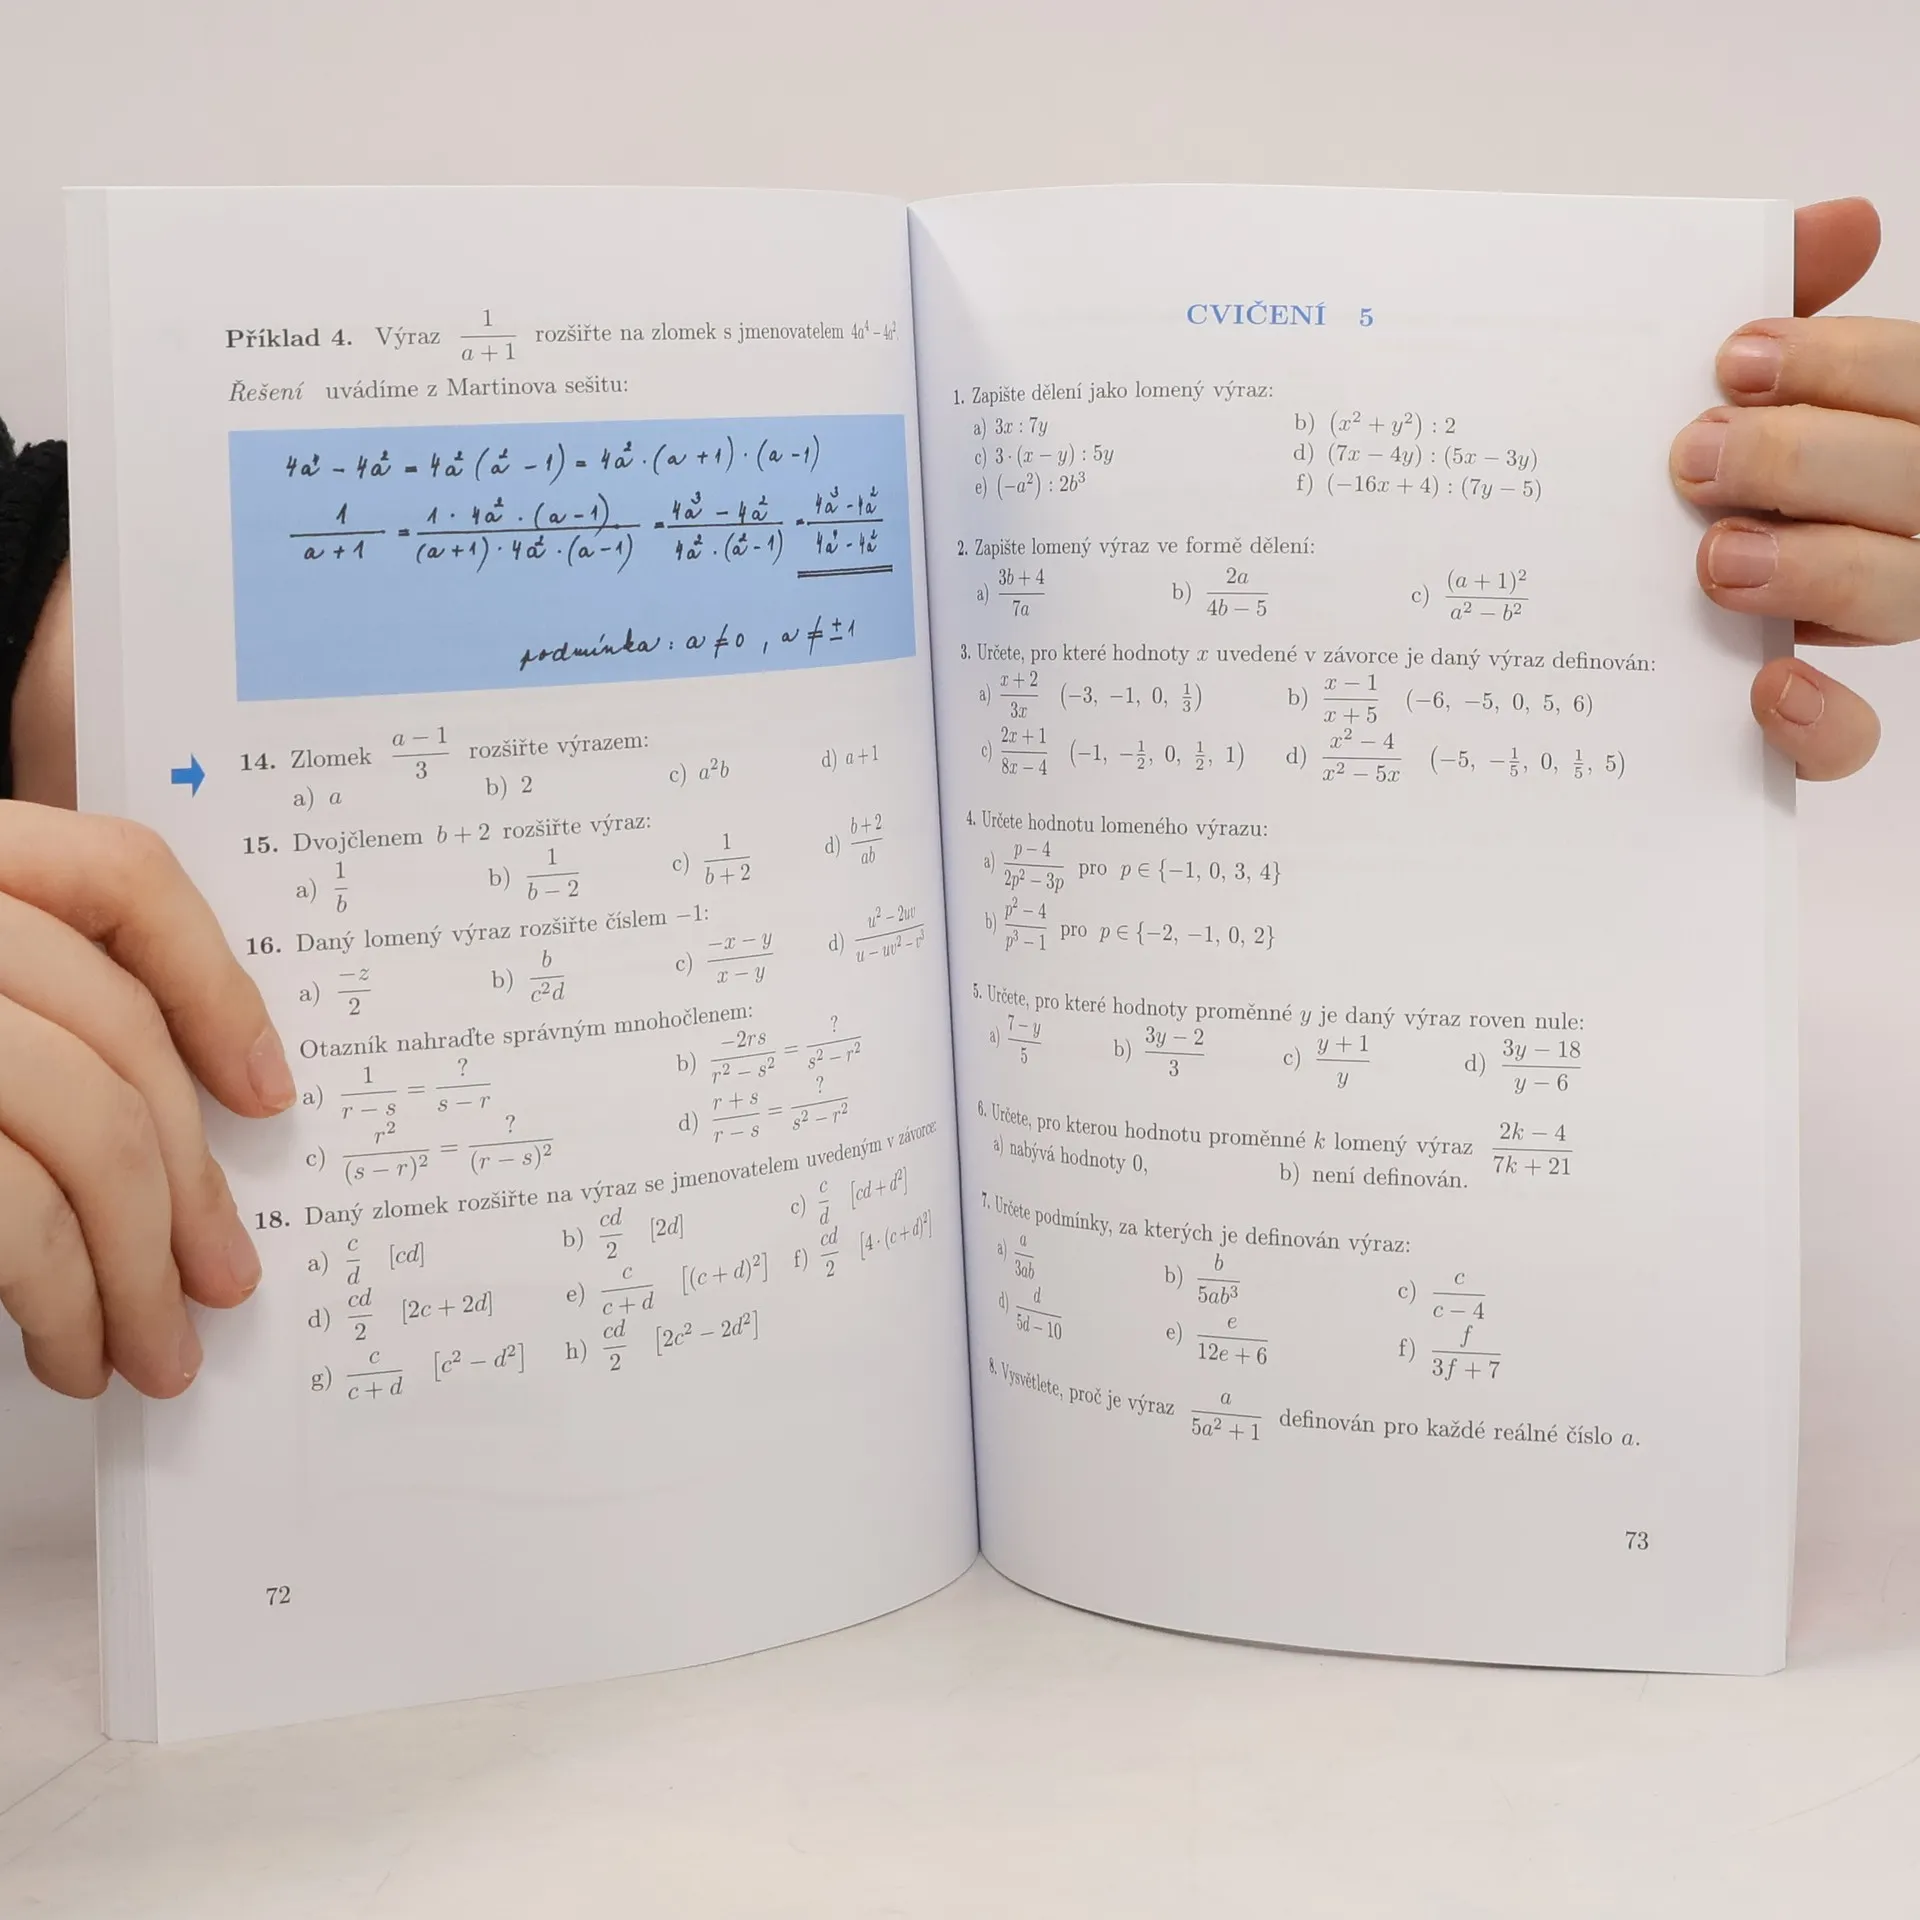 Příklad 4. Výraz 1/(a + 1) rozšiřte na zlomek s jmenovatelem 4a⁴ – 4a².
Řešení uvádíme z Martinova sešitu:
4a⁴ – 4a² = 4a² (a² – 1) = 4a² · (a + 1) · (a – 1)
1/(a + 1) = (1 · 4a² · (a – 1))/((a + 1) · 4a² · (a – 1)) = (4a³ – 4a²)/(4a² · (a² – 1)) = (4a³ – 4a²)/(4a⁴ – 4a²)
podmínka : a ≠ 0 , a ≠ ± 1
14. Zlomek (a – 1)/3 rozšiřte výrazem:
a) a b) 2 c) a²b d) a + 1
15. Dvojčlenem b + 2 rozšiřte výraz:
a) 1/b b) 1/(b – 2) c) 1/(b + 2) d) (b + 2)/ab
16. Daný lomený výraz rozšiřte číslem –1:
a) –z/2 b) b/(c²d) c) (–x – y)/(x – y) d) (u² – 2uv)/(u – uv² – v³)
Otazník nahraďte správným mnohočlenem:
a) 1/(r – s) = ?/(s – r) b) –2rs/(r² – s²) = ?/(s² – r²)
c) r²/(s – r)² = ?/(r – s)² d) (r + s)/(r – s) = ?/(s² – r²)
18. Daný zlomek rozšiřte na výraz se jmenovatelem uvedeným v závorce:
a) c/d [cd] b) cd/2 [2d] c) c/d [cd + d²]
d) cd/2 [2c + 2d] e) c/(c + d) [(c + d)²] f) cd/2 [4 · (c + d)²]
g) c/(c + d) [c² – d²] h) cd/2 [2c² – 2d²]
72
CVIČENÍ 5
1. Zapište dělení jako lomený výraz:
a) 3x : 7y b) (x² + y²) : 2
c) 3 · (x – y) : 5y d) (7x – 4y) : (5x – 3y)
e) (–a²) : 2b³ f) (–16x + 4) : (7y – 5)
2. Zapište lomený výraz ve formě dělení:
a) (3b + 4)/7a b) 2a/(4b – 5) c) (a + 1)²/(a² – b²)
3. Určete, pro které hodnoty x uvedené v závorce je daný výraz definován:
a) (x + 2)/3x (–3, –1, 0, 1/3) b) (x – 1)/(x + 5) (–6, –5, 0, 5, 6)
c) (2x + 1)/(8x – 4) (–1, –1/2, 0, 1/2, 1) d) (x² – 4)/(x² – 5x) (–5, –1/5, 0, 1/5, 5)
4. Určete hodnotu lomeného výrazu:
a) (p – 4)/(2p² – 3p) pro p ∈ {–1, 0, 3, 4}
b) (p² – 4)/(p³ – 1) pro p ∈ {–2, –1, 0, 2}
5. Určete, pro které hodnoty proměnné y je daný výraz roven nule:
a) (7 – y)/5 b) (3y – 2)/3 c) (y + 1)/y d) (3y – 18)/(y – 6)
6. Určete, pro kterou hodnotu proměnné k lomený výraz (2k – 4)/(7k + 21)
a) nabývá hodnoty 0, b) není definován.
7. Určete podmínky, za kterých je definován výraz:
a) a/3ab b) b/5ab³ c) c/(c – 4)
d) d/(5d – 10) e) e/(12e + 6) f) f/(3f + 7)
8. Vysvětlete, proč je výraz a/(5a² + 1) definován pro každé reálné číslo a.
73